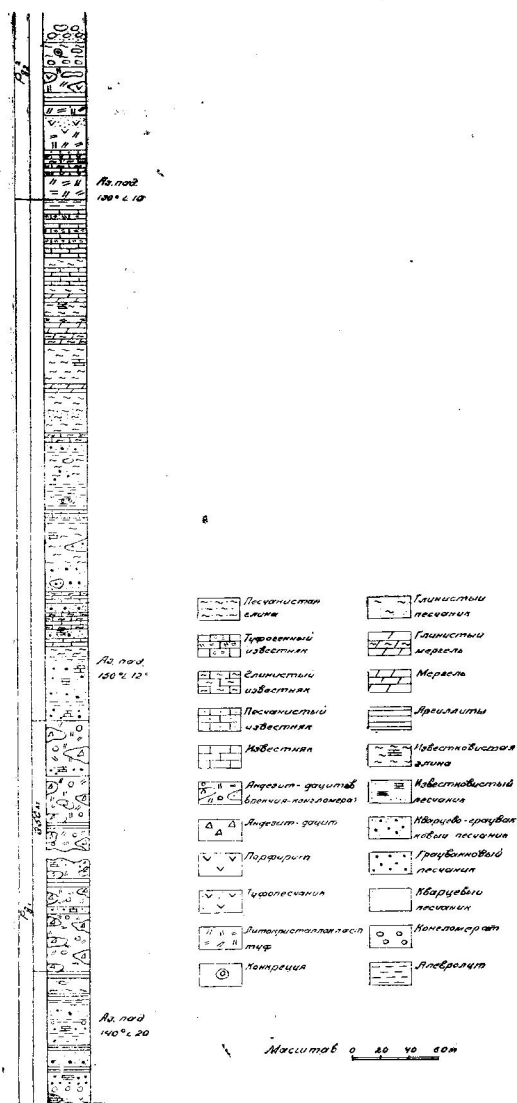 Аз. пад.
130° ∠ 10°
Аз. пад.
150° ∠ 12°
Аз. пад
140° ∠ 20
Песчанистая
глина
Туфогенный
известняк
Глинистый
известняк
Песчанистый
известняк
Известняк
Андезит-дацитов
брекчия-конгломерат
Андезит-дацит
Порфирит
Туфопесчаник
Литокристаллокласт
туф
Конкреция
Глинистый
песчаник
Глинистый
мергель
Мергель
Аргиллиты
Известковистая
глина
Известковистый
песчаник
Кварцево-граувак
ковый песчаник
Граувакковый
песчаник
Кварцевый
песчаник
Конгломерат
Алевролит
Масштаб 0 20 40 60м